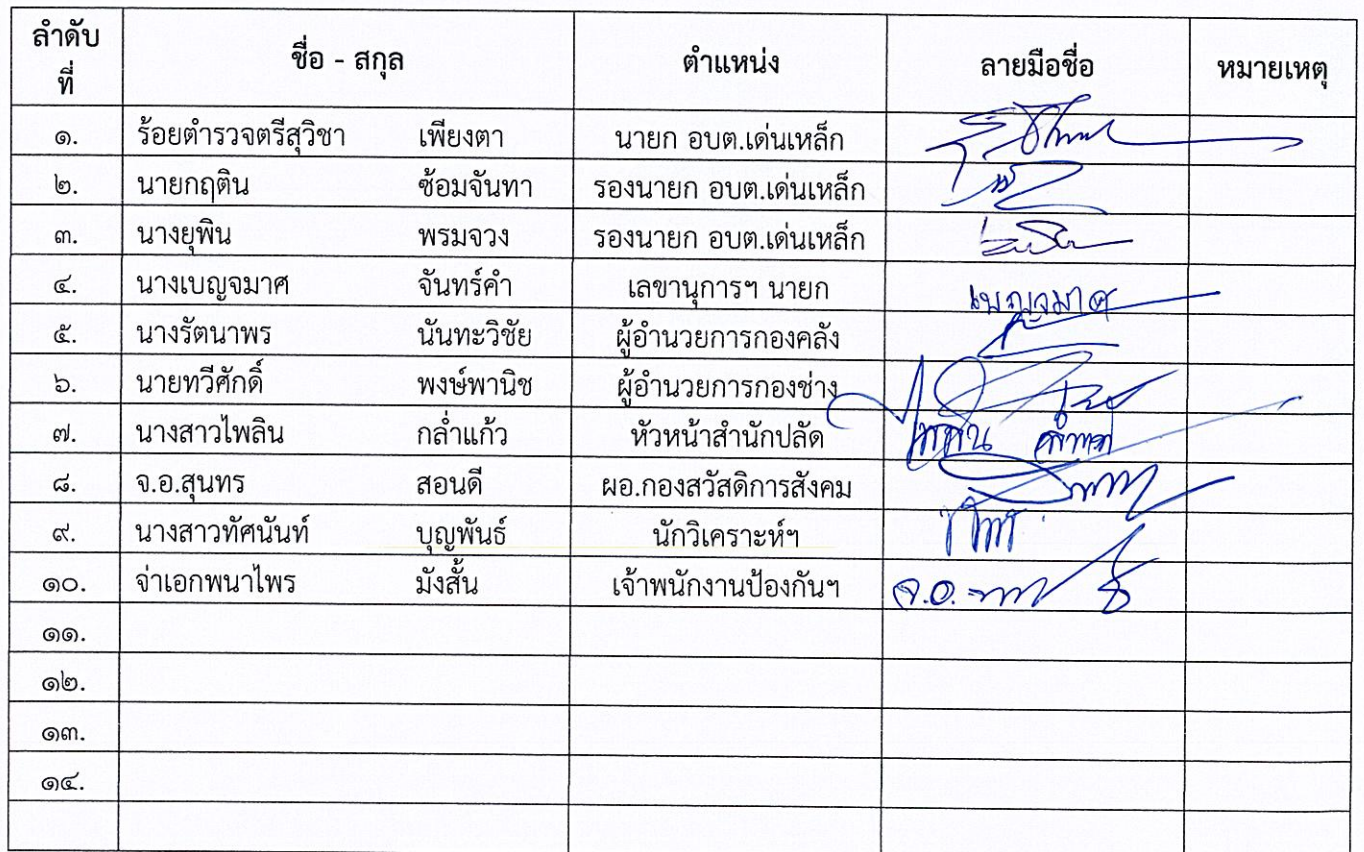 ลำดับที่ ชื่อ - สกุล ตำแหน่ง ลายมือชื่อ หมายเหตุ
๑. ร้อยตำรวจตรีสุวิชา เพียงตา นายก อบต.เด่นเหล็ก
๒. นายกฤติน ซ้อมจันทา รองนายก อบต.เด่นเหล็ก
๓. นางยุพิน พรมจวง รองนายก อบต.เด่นเหล็ก
๔. นางเบญจมาศ จันทร์คำ เลขานุการฯ นายก เบญจมาศ
๕. นางรัตนาพร นันทะวิชัย ผู้อำนวยการกองคลัง
๖. นายทวีศักดิ์ พงษ์พานิช ผู้อำนวยการกองช่าง
๗. นางสาวไพลิน กล่ำแก้ว หัวหน้าสำนักปลัด
๘. จ.อ.สุนทร สอนดี ผอ.กองสวัสดิการสังคม
๙. นางสาวทัศนันท์ บุญพันธ์ นักวิเคราะห์ฯ
๑๐. จ่าเอกพนาไพร มังสั้น เจ้าพนักงานป้องกันฯ จ.อ.
๑๑.
๑๒.
๑๓.
๑๔.